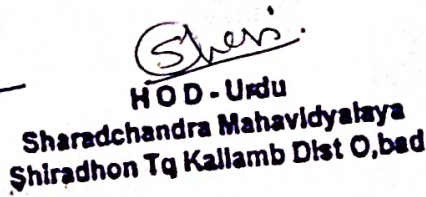 HOD-Urdu
Sharadchandra Mahavidyalaya
Shiradhon Tq Kallamb Dist O,bad